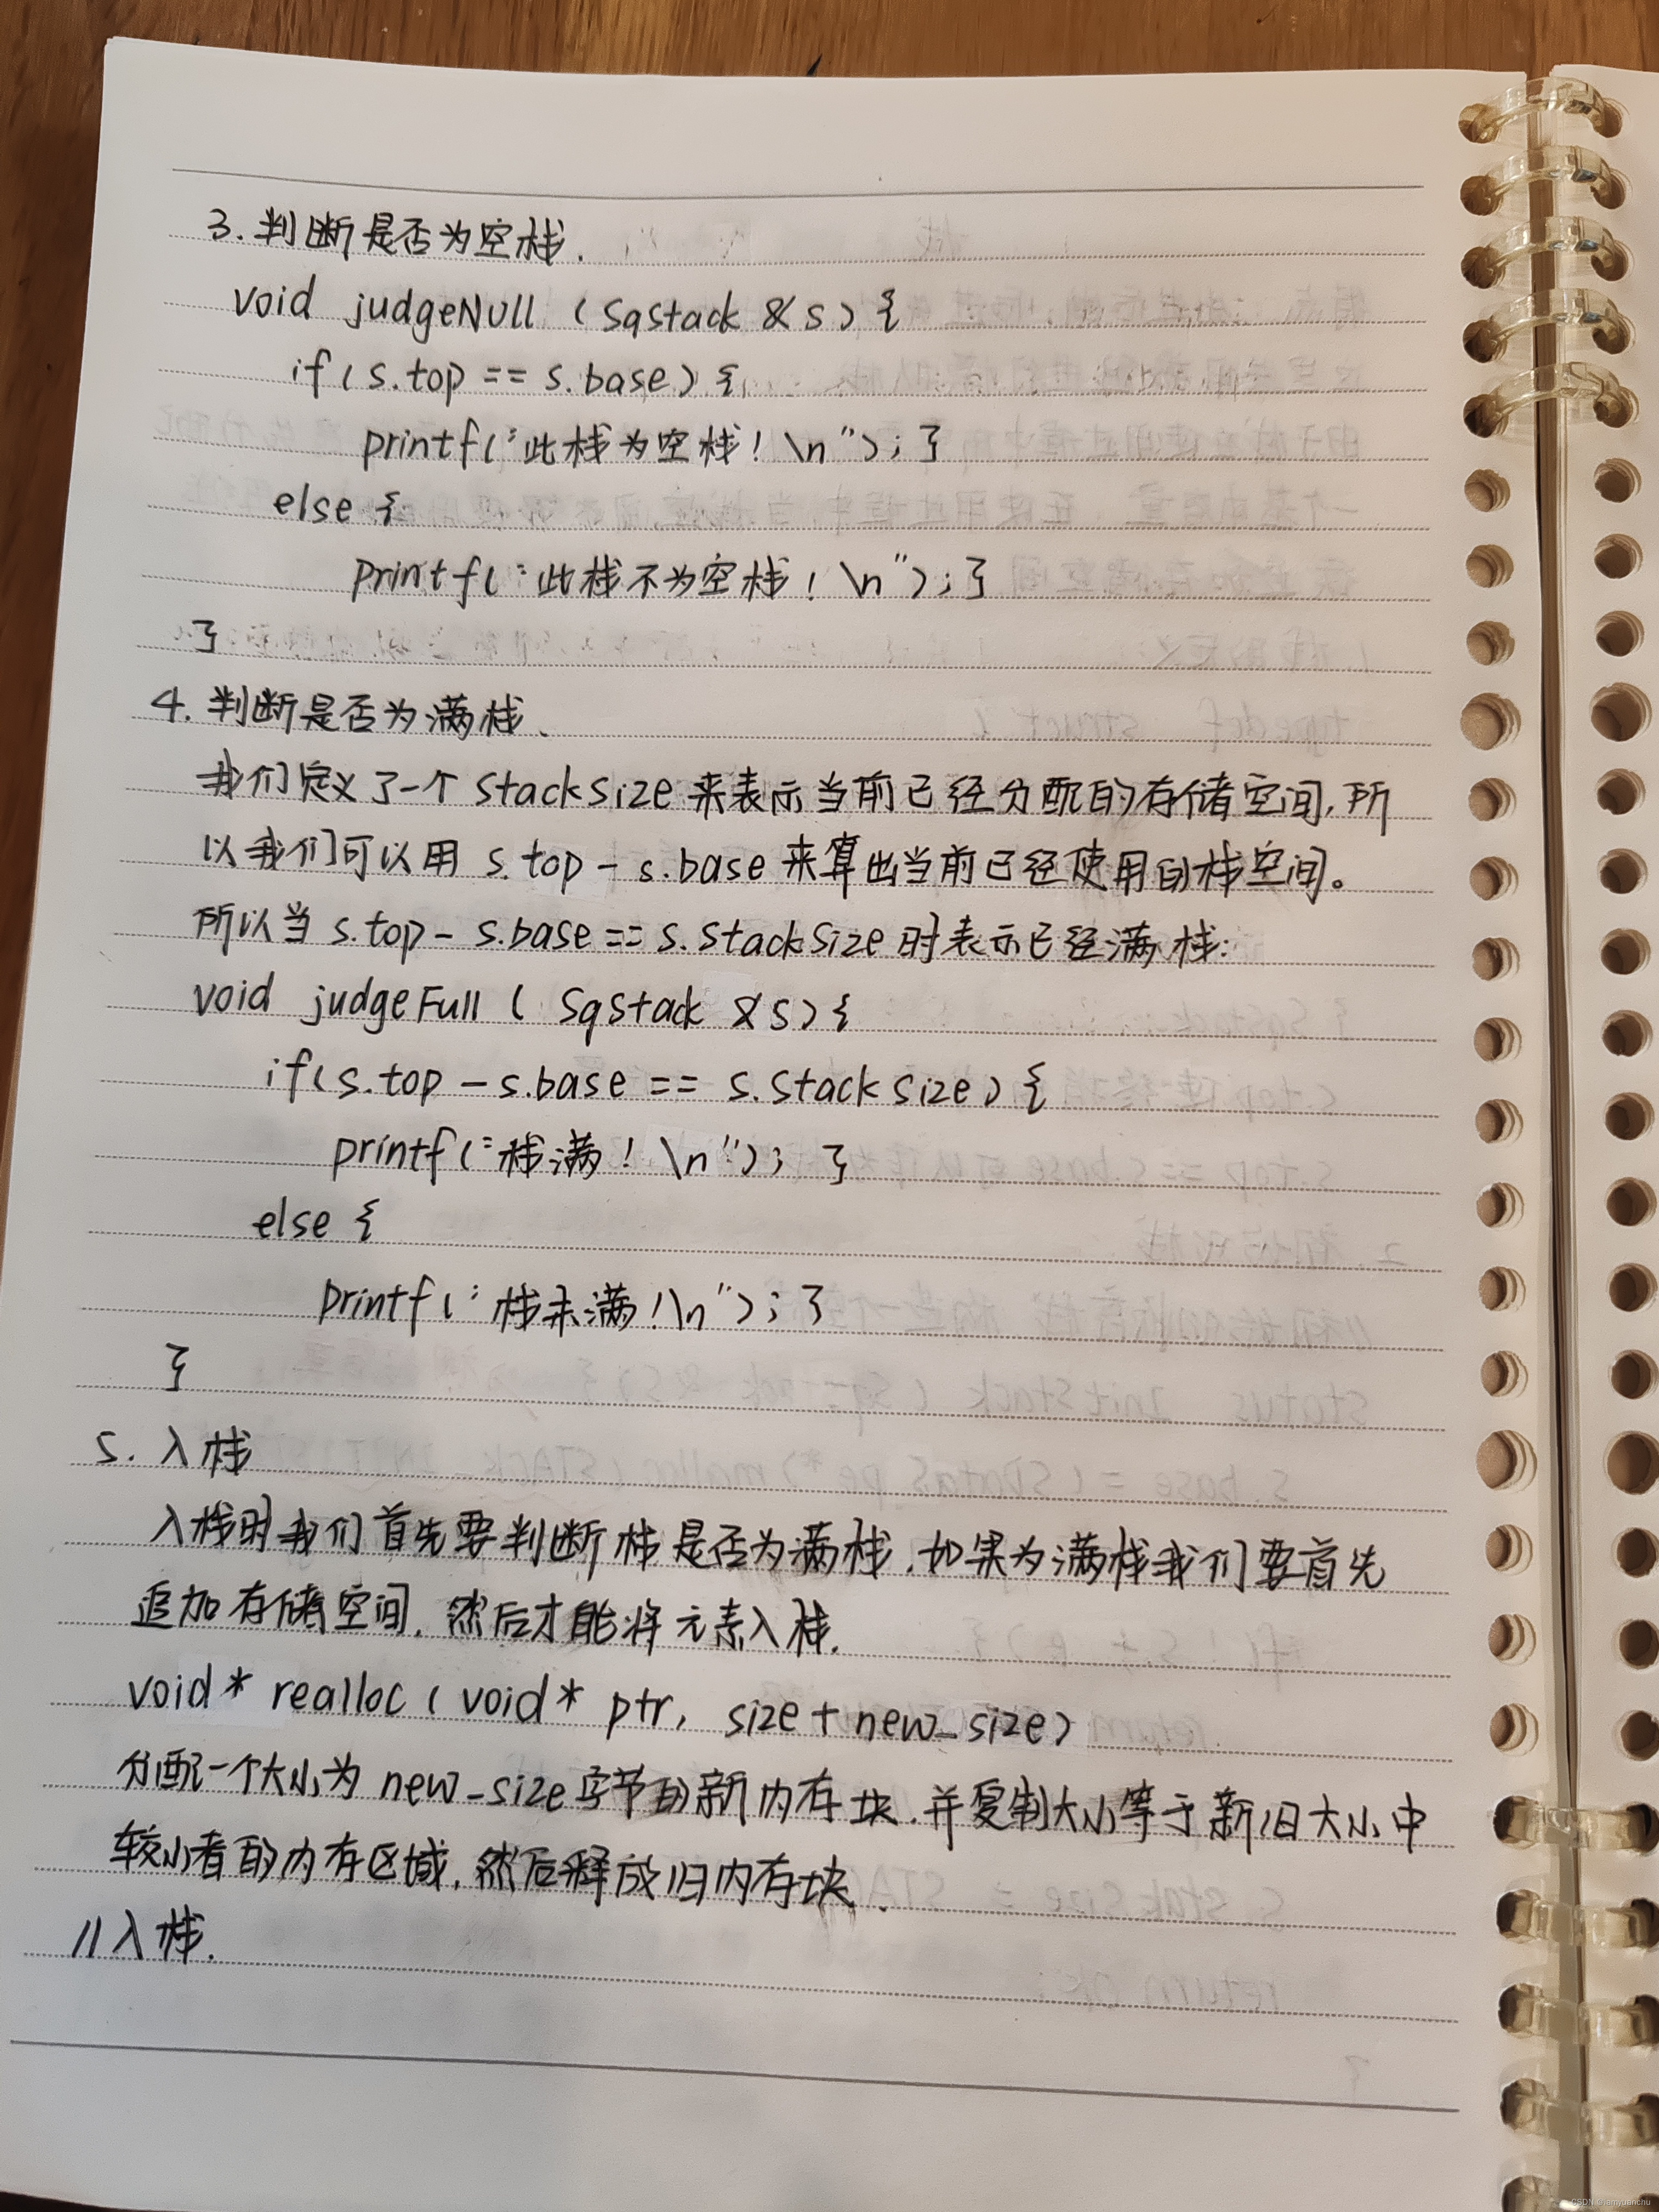 3. 判断是否为空栈.
void judgeNull (SqStack &s) {
if (s.top == s.base) {
printf("此栈为空栈! \n"); }
else {
printf("此栈不为空栈! \n"); }
}
4. 判断是否为满栈、
我们定义了一个 StackSize 来表示当前已经分配的存储空间,所
以我们可以用 s.top - s.base 来算出当前已经使用的栈空间。
所以当 s.top - s.base == s.StackSize 时表示已经满栈:
void judgeFull ( SqStack &s) {
if(s.top - s.base == s.StackSize) {
printf("栈满! \n"); }
else {
printf("栈未满!\n"); }
}
5. 入栈
入栈时我们首先要判断栈是否为满栈,如果为满栈我们要首先
追加存储空间,然后才能将元素入栈.
void* realloc (void* ptr, size+new_size)
分配一个大小为 new_size 字节的新内存块,并复制大小等于新旧大小中
较小者的内存区域,然后释放旧内存块.
//入栈.